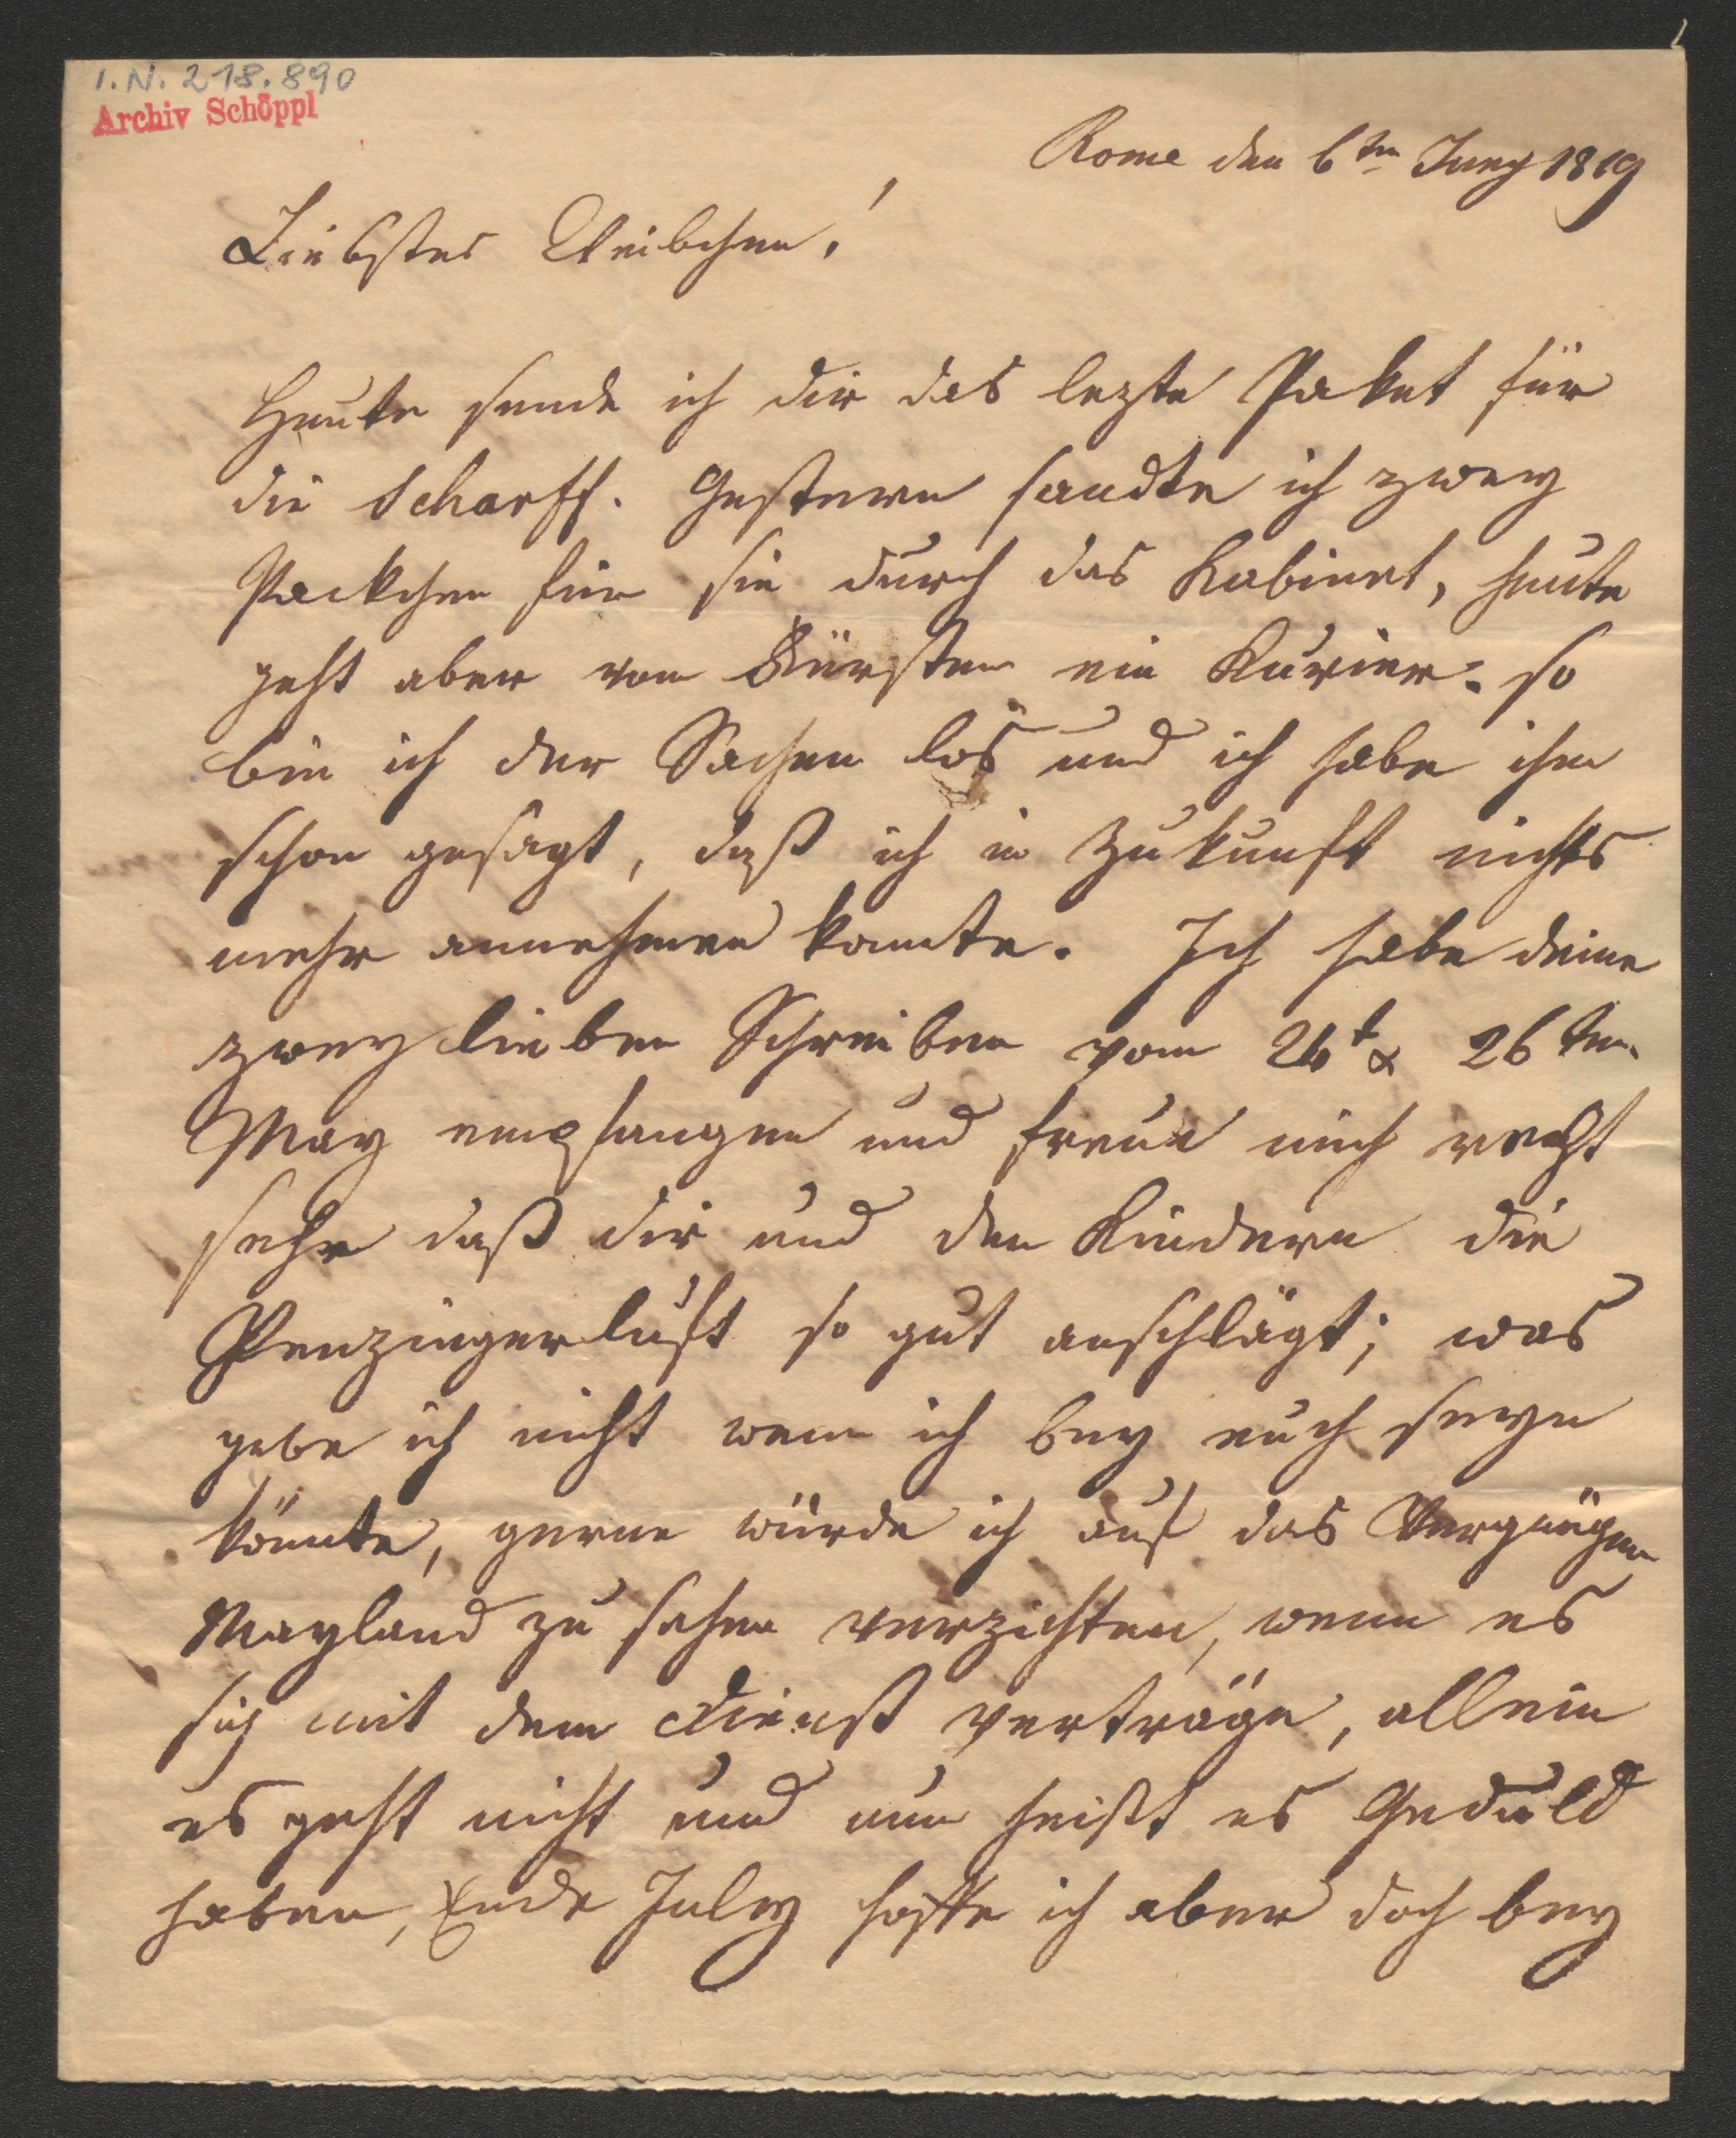 I.N. 218.890
Archiv Schöppl
Rome den 6ten Juny 1819
Liebstes Weibchen!
Heute sende ich dir das lezte Paket für
die Scharff. Gestern sandte ich zwey
Packchen für sie durch das Kabinet, heute
geht aber vom Fürsten ein Kurier. so
bin ich der Sachen los und ich habe ihm
schon gesagt, daß ich in Zukunft nichts
mehr annehmen konnte. Ich habe deine
zwey lieben Schreiben vom 24t & 26ten
May empfangen und freue mich recht
sehr daß dir und den Kindern die
Penzingerluft so gut anschlägt; was
gebe ich nicht wenn ich bey euch seyn
könnte, gerne würde ich auf das Vergnügen
Mayland zu sehen verzichten, wenn es
sich mit dem Dienst verträge, allein
es geht nicht und nun heißt es Geduld
haben, Ende July hoffe ich aber doch bey